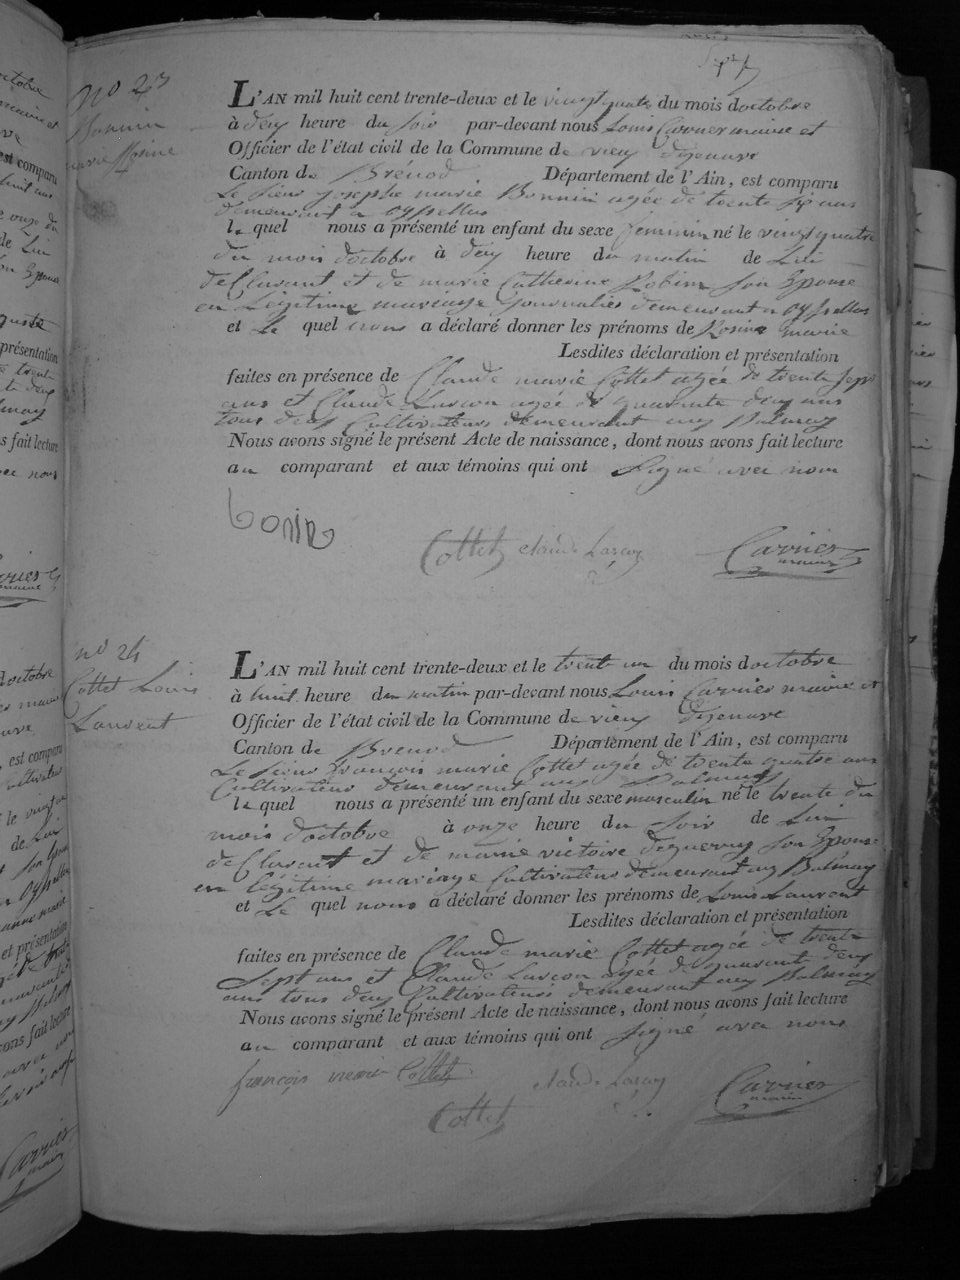 No 23
Bonnin
marie Rosine
L'AN mil huit cent trente-deux et le vingt quatre du mois doctobre
à deux heure du soir par-devant nous Louis Carrier maire et
Officier de l'état civil de la Commune de vieux dizenave
Canton de Brénod Département de l'Ain, est comparu
Le sieur joseph marie Bonnin agée de trente six ans
demeurant a
le quel nous a présenté un enfant du sexe feminin né le vingt quatre
du mois doctobre à deux heure du matin de Lui
deClarant et de marie Catherine Robin son Epouse
en Légitime mariage journalier demeurant a
et Le quel nous a déclaré donner les prénoms de Rosine marie
Lesdites déclaration et présentation
faites en présence de Claude marie Cottet agée de trente sept
ans et Claude Larçon agée de quarante deux ans
tous deux Cultivateurs demeurant aux Balmay
Nous avons signé le présent Acte de naissance, dont nous avons fait lecture
au comparant et aux témoins qui ont signé avec nous
bonin
Cottet claude Larcon Carrier
maire
no 24
Cottet Louis
Laurent
L'AN mil huit cent trente-deux et le trent un du mois doctobre
à huit heure du matin par-devant nous Louis Carrier maire et
Officier de l'état civil de la Commune de vieux dizenave
Canton de Brenod Département de l'Ain, est comparu
Le sieur françois marie Cottet agée de trente quatre ans
Cultivateur demeurant aux Balmay
le quel nous a présenté un enfant du sexe masculin né le trente du
mois doctobre à onze heure du soir de Lui
deClarent et de marie victoire son Epouse
en légitime mariage Cultivateur demeurant aux Balmay
et Le quel nous a déclaré donner les prénoms de Louis Laurent
Lesdites déclaration et présentation
faites en présence de Claude marie Cottet agée de trente
Sept ans et Claude Larçon agée de quarante deux
ans tous deux Cultivateurs demeurant aux Balmay
Nous avons signé le présent Acte de naissance, dont nous avons fait lecture
au comparant et aux témoins qui ont signé avec nous
françois marie Cottet claude Larcon Carrier
maire
Cottet